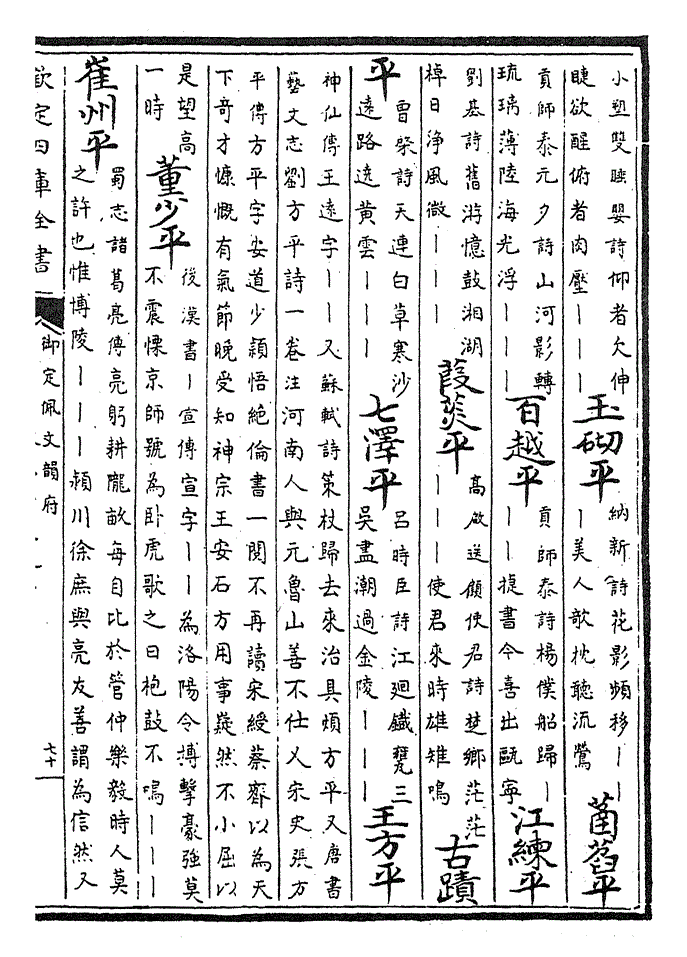 小塑雙睡嬰詩仰者欠伸
睫欲醒俯者肉壓丨丨
玉砌平
納新詩花影頻移丨丨
丨美人歌枕聽流鶯
菡萏平
貢師泰元夕詩山河影轉
琉璃薄陸海光浮丨丨丨
百越平
貢師泰詩楊僕船歸丨
丨丨捷書今喜出甌寧
江練平
劉基詩舊游憶鼓湘湖
棹日淨風微丨丨丨
葭菼平
高啟送顧使君詩楚鄉茫茫
丨丨丨使君來時雄雉鳴
古蹟
平
曹棨詩天連白草寒沙
遠路遶黃雲丨丨丨
七澤平
呂時臣詩江迴鐵甕三
吳盡潮過金陵丨丨丨
王方平
神仙傳王遠字丨丨又蘇軾詩策杖歸去來治具煩方平又唐書
藝文志劉方平詩一卷注河南人與元魯山善不仕又宋史張方
平傳方平字安道少穎悟絕倫書一閱不再讀宋綬蔡齊以為天
下奇才慷慨有氣節晚受知神宗王安石方用事嶷然不小屈以
是望高
一時
董少平
後漢書丨宣傳宣字丨丨為洛陽令搏擊豪強莫
不震慄京師號為卧虎歌之曰枹鼓不鳴丨丨丨
崔州平
蜀志諸葛亮傳亮躬耕隴畝每自比於管仲樂毅時人莫
之許也惟博陵丨丨丨潁川徐庶與亮友善謂為信然又
欽定四庫全書
御定佩文韻府
七十